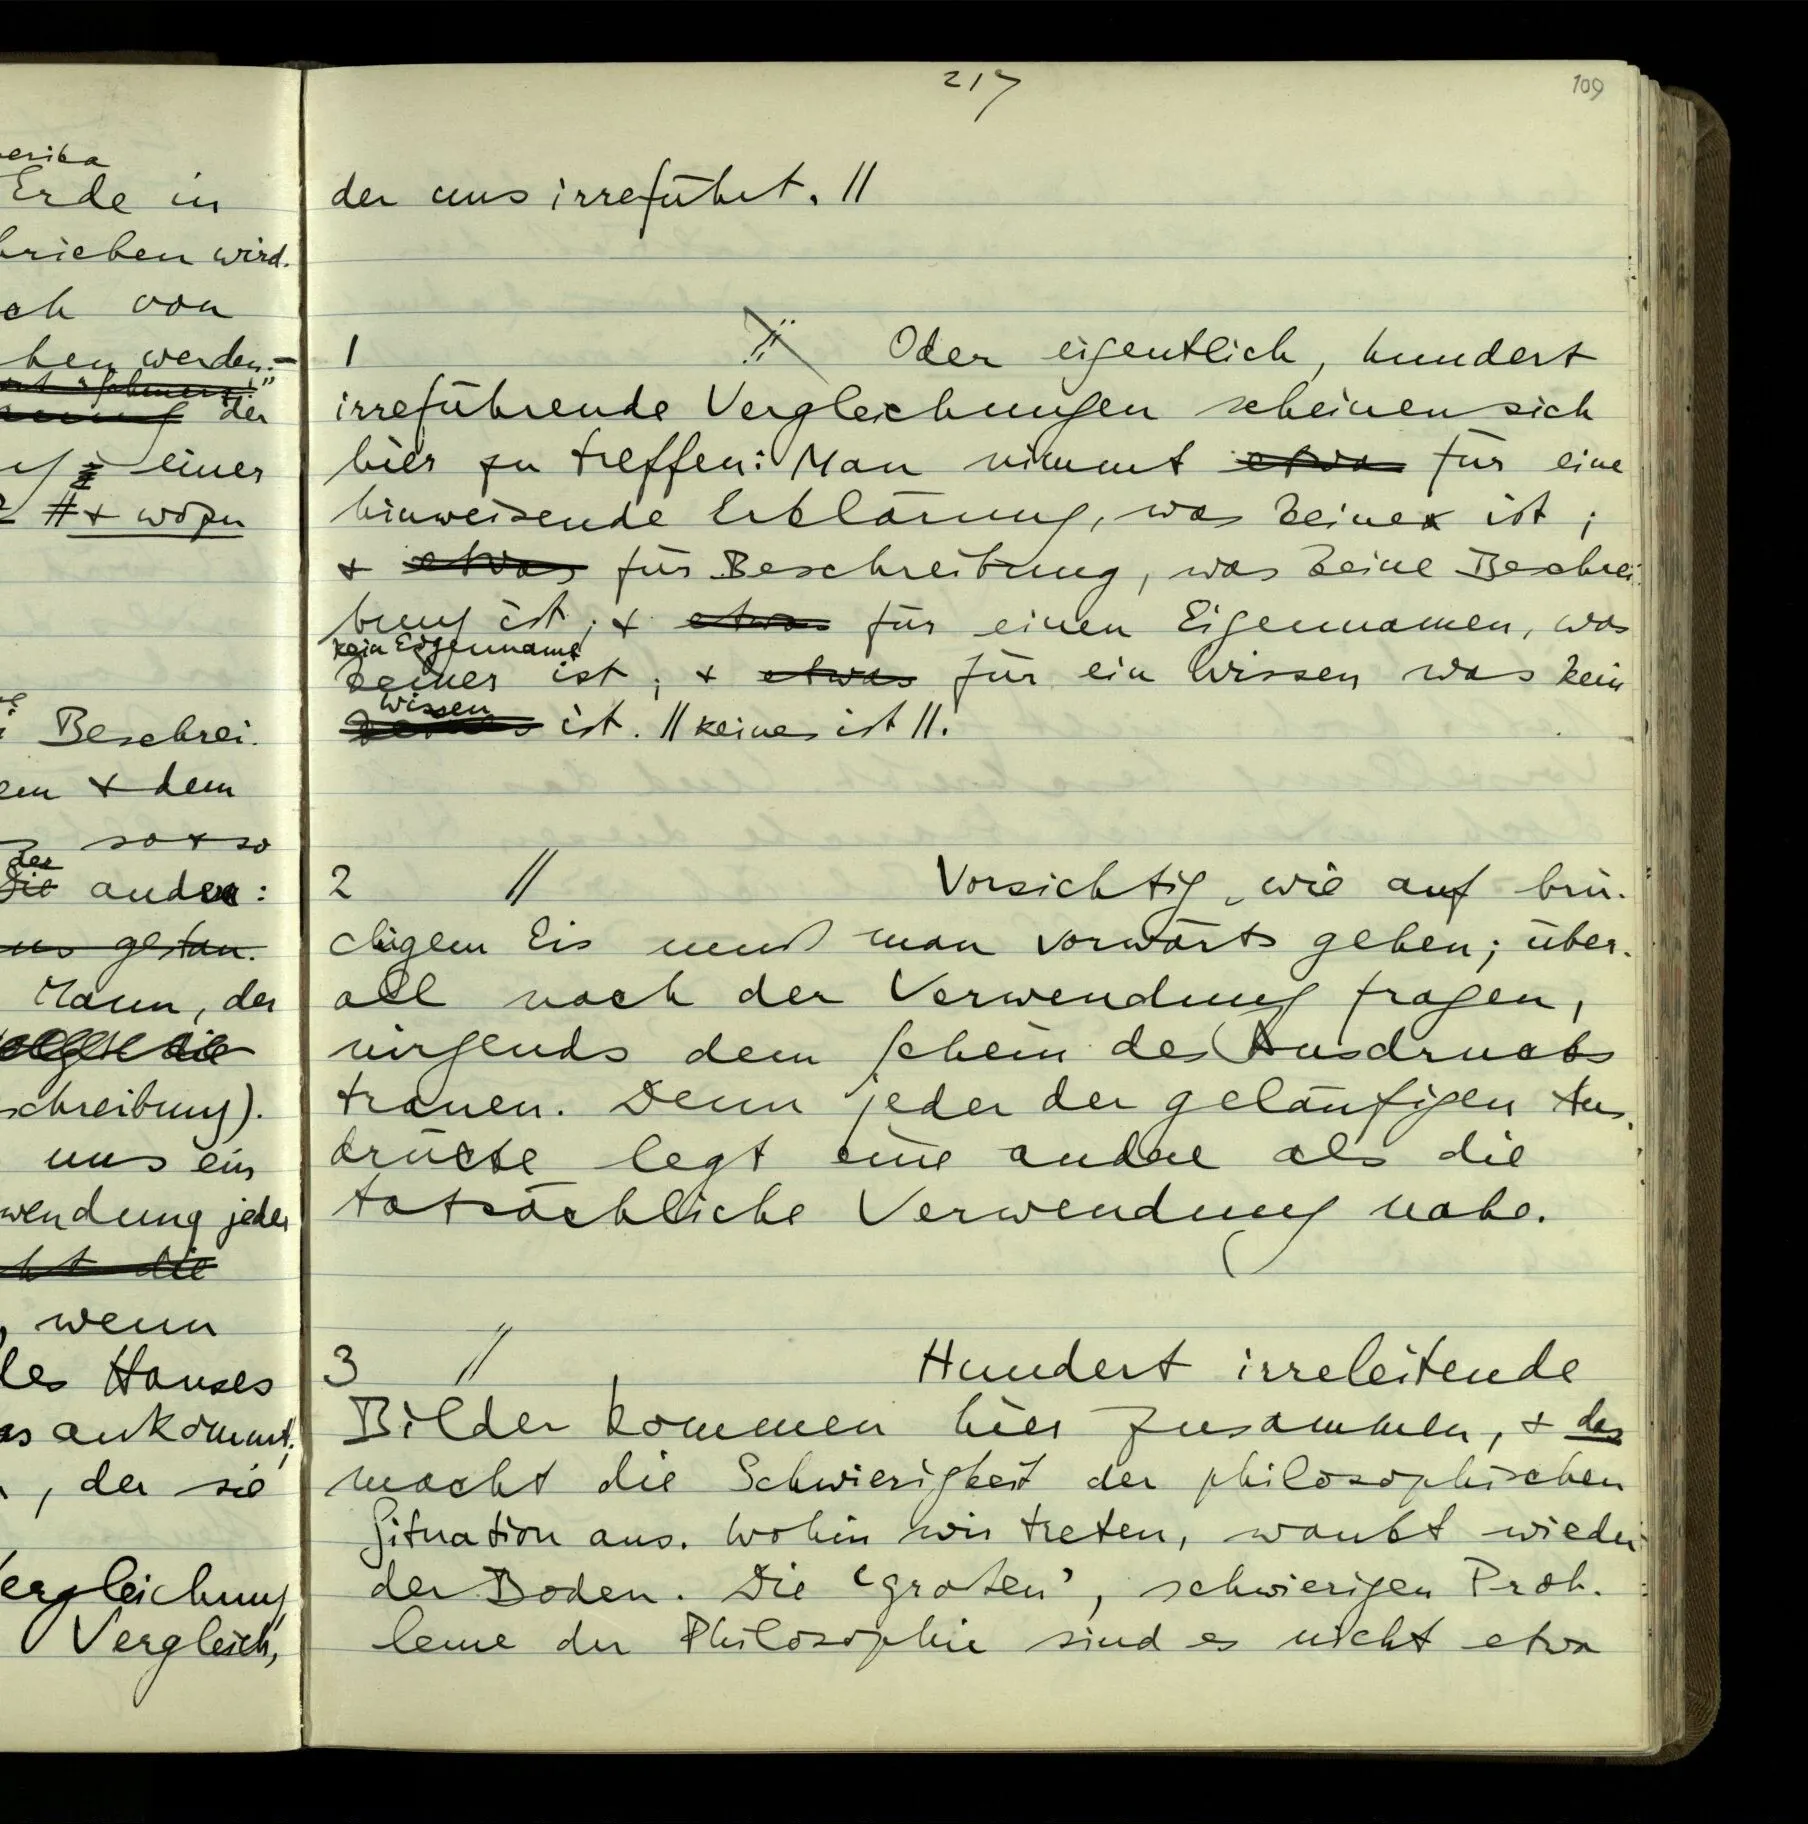 erika
Erde in
brieben wird.
ch von
hen werden.–
der
einer
& wozu
Beschrei-
em & dem
so & so
der
die andere:
uns getan.
Mann, der
schreibung).
uns ein
wendung jeder
die
, wenn
des Hauses
as ankommt;
, der sie
Vergleichung
Vergleich,
217
109
der uns irreführt. //
1 // Oder eigentlich, hundert
irreführende Vergleichungen scheinen sich
hier zu treffen: Man nimmt etwa für eine
hinweisende Erklärung, was keine ist;
& etwas für Beschreibung, was keine Beschrei-
bung ist; & etwas für einen Eigennamen, was
kein Eigenname
keiner ist; & etwas für ein Wissen was kein
Wissen
ist. // keines ist //.
2 // Vorsichtig, wie auf brü-
chigem Eis muß man vorwärts gehen; über-
all nach der Verwendung fragen,
nirgends dem Schein des Ausdrucks
trauen. Denn jeder der geläufigen Aus-
drücke legt eine andere als die
tatsächliche Verwendung nahe.
3 // Hundert irreleitende
Bilder kommen hier zusammen, & das
macht die Schwierigkeit der philosophischen
Situation aus. Wohin wir treten, wankt wieder
der Boden. Die ‘großen’, schwierigen Prob-
leme der Philosophie sind es nicht etwa